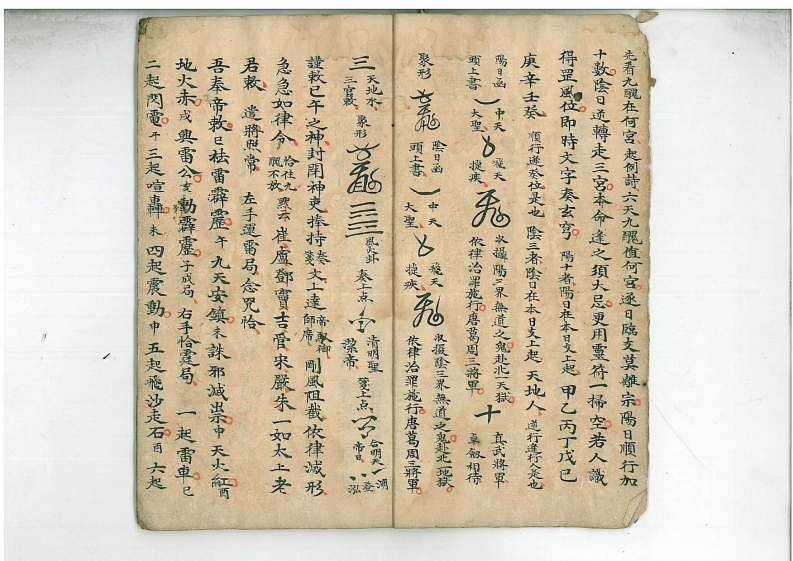 先看九醜在何宮起例詩六天九醜值何宮逐日臨支莫離宗陽日順行加
十數陰日逆轉走三宮本命逢之須大忌更用靈符一掃空若人識
得罡風位即時文字奏玄穹陽十者陽日在本日支上起甲乙丙丁戊己
庚辛壬癸順行遂癸位是也陰三者陰日在本日支上起天地人逆行逢行人是也
陽日函頭上書中天大聖飛天捷疾收攝陽三界無道之鬼赴北一天獄依律治罪施行唐葛周三將軍十真武將軍卓劍相待
聚形陰日函頭上書中天大聖飛天捷疾收攝陰三界無道之鬼赴北一地獄依律治罪施行唐葛周三將軍
三天地水三官敕聚形三三風卦奏上点清明聖潔帝箋上点合明天帝日
謹敕巳午之神封閉神吏捧持奏箋文上達帝御師席剛風阻截依律滅形
急急如律令恰住九醜不放默云崔盧鄧竇吉管宋嚴朱一如太上老
君敕遣將照常左手運雷局念咒恰
吾奉帝敕巳祛雷霹靂午九天安鎮未誅邪滅祟申天火紅酉
地火赤戌興雷公亥動霹靂子成局右手恰霆局一起雷車巳
二起閃電午三起喧轟未四起震動申五起飛沙走石酉六起